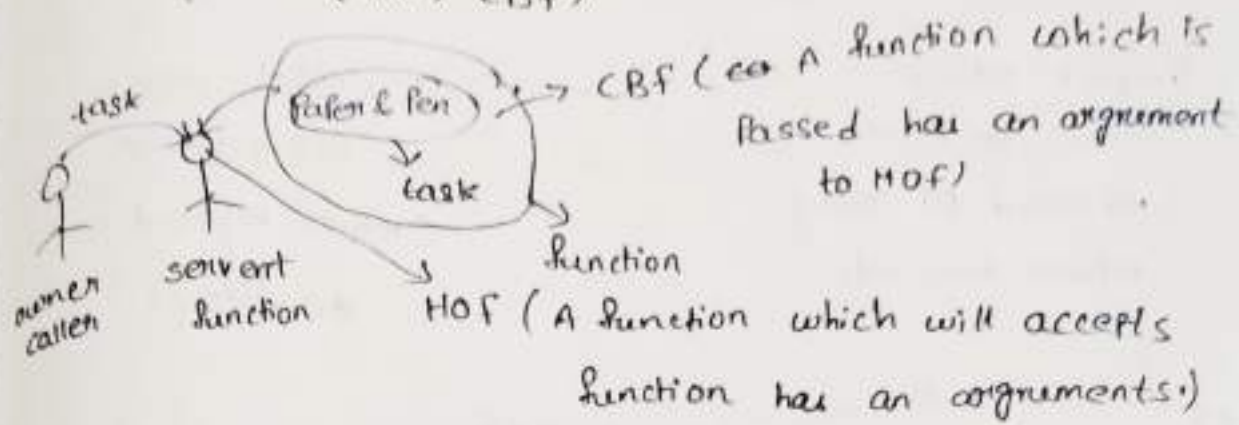 CBF)
task
Paper & Pen
→ CBF ( A function which is
Passed has an argument
to HOF)
task
function
owner
caller
servent
function
HOF (A function which will accepts
function has an arguments.)